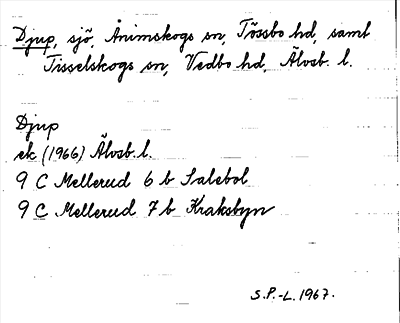 Djup, sjö, Ånimskogs sn, Tössbo hd, samt
Tisselskogs sn, Vedbo hd, Älvsb. l.
Djup
ek (1966) Älvsb. l.
9 C Mellerud 6 b Salebol
9 C Mellerud 7 b Kraksbyn
S.P.-L. 1967.